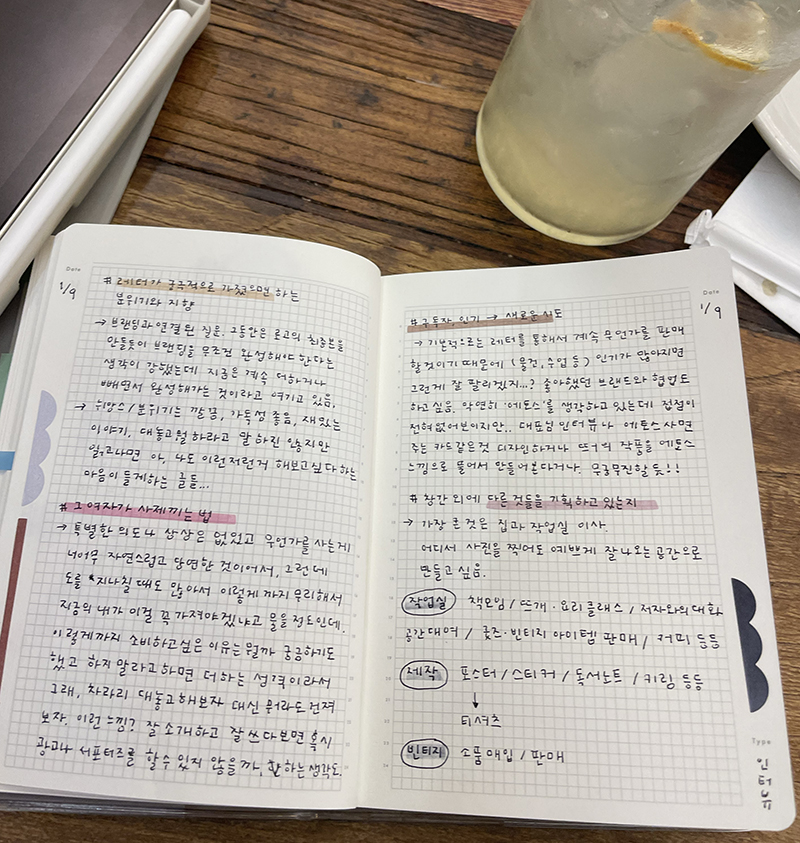 Date
1/9
# 레터가 궁극적으로 가졌으면 하는
분위기와 지향
→ 브랜딩과 연결된 질문. 그동안은 로고의 최종본을
만들듯이 브랜딩을 무조건 완성해야 한다는
생각이 강했는데 지금은 계속 더하거나
빼면서 완성해가는 것이라고 여기고 있음.
→ 뉘앙스/분위기는 깔끔, 가독성 좋음, 재밌는
이야기, 대놓고 뭘 하라고 말 하진 않지만
읽고나면 아, 나도 이런저런거 해보고싶다 하는
마음이 들게하는 글들...
# 그 여자가 사제끼는 법
→ 특별한 의도나 상상은 없었고 무언가를 사는게
너어무 자연스럽고 당연한 것이어서, 그런데
도를 지나칠 때도 많아서 이렇게 까지 무리해서
지금의 내가 이걸 꼭 가져야겠냐고 물을 정도인데,
이렇게까지 소비하고싶은 이유는 뭘까 궁금하기도
했고 하지 말라고하면 더하는 성격이라서
그래, 차라리 대놓고 해보자 대신 뭐라도 건져
보자. 이런 느낌? 잘 소개하고 잘 쓰다보면 혹시
광고나 서포터즈를 할 수 있지 않을까, 하는 생각도.
Date
1/9
# 구독자, 인기 → 새로운 시도
→ 기본적으로는 레터를 통해서 계속 무언가를 판매
할 것이기 때문에 (물건, 수업 등) 인기가 많아지면
그런게 잘 팔리겠지...? 좋아했던 브랜드와 협업도
하고 싶음. 막연히 '에토스'를 생각하고 있는데 접점이
전혀 없어보이지만.. 대표님 인터뷰나 에토스 사면
주는 카드같은 것 디자인하거나 뜨녀의 작품을 에토스
느낌으로 풀어서 만들어본다거나. 무궁무진할 듯!!
# 창간 외에 다른 것들을 기획하고 있는지
→ 가장 큰 것은 집과 작업실 이사.
어디서 사진을 찍어도 예쁘게 잘 나오는 공간으로
만들고 싶음.
작업실 책모임 / 뜨개 · 요리클래스 / 저자와의 대화
공간대여 / 굿즈 · 빈티지 아이템 판매 / 커피 등등
제작 포스터 / 스티커 / 독서노트 / 키링 등등
↓
티셔츠
빈티지 소품 매입 / 판매
Type
인터뷰